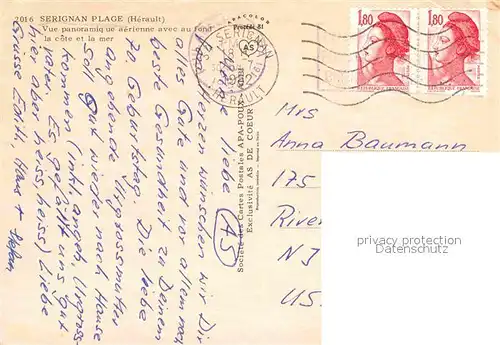 2016 SERIGNAN PLAGE (Hérault)
Vue panoramique aérienne avec au fond
la côte et la mer
liebe
Von Herzen wünschen wir Dir
alles Gute und vor allem noch
beste Gesundheit zu Deinem
70. Geburtstag. Die liebe
angehende Urgrossmutter
soll gut wieder nach Hause
kommen (inkl. angeh. Urgross-
vater). Es gefällt uns gut
hier aber heiss, heiss) Liebe
Grüsse Edith, Hans +
AS
Société des Cartes Postales APA-POUX
Exclusivité AS DE COEUR
SERIGNAN
HERAULT
1,80
REPUBLIQUE FRANÇAISE
1,80
REPUBLIQUE FRANÇAISE
Mrs
Anna Baumann
175
River
NJ
US
privacy protection
Datenschutz